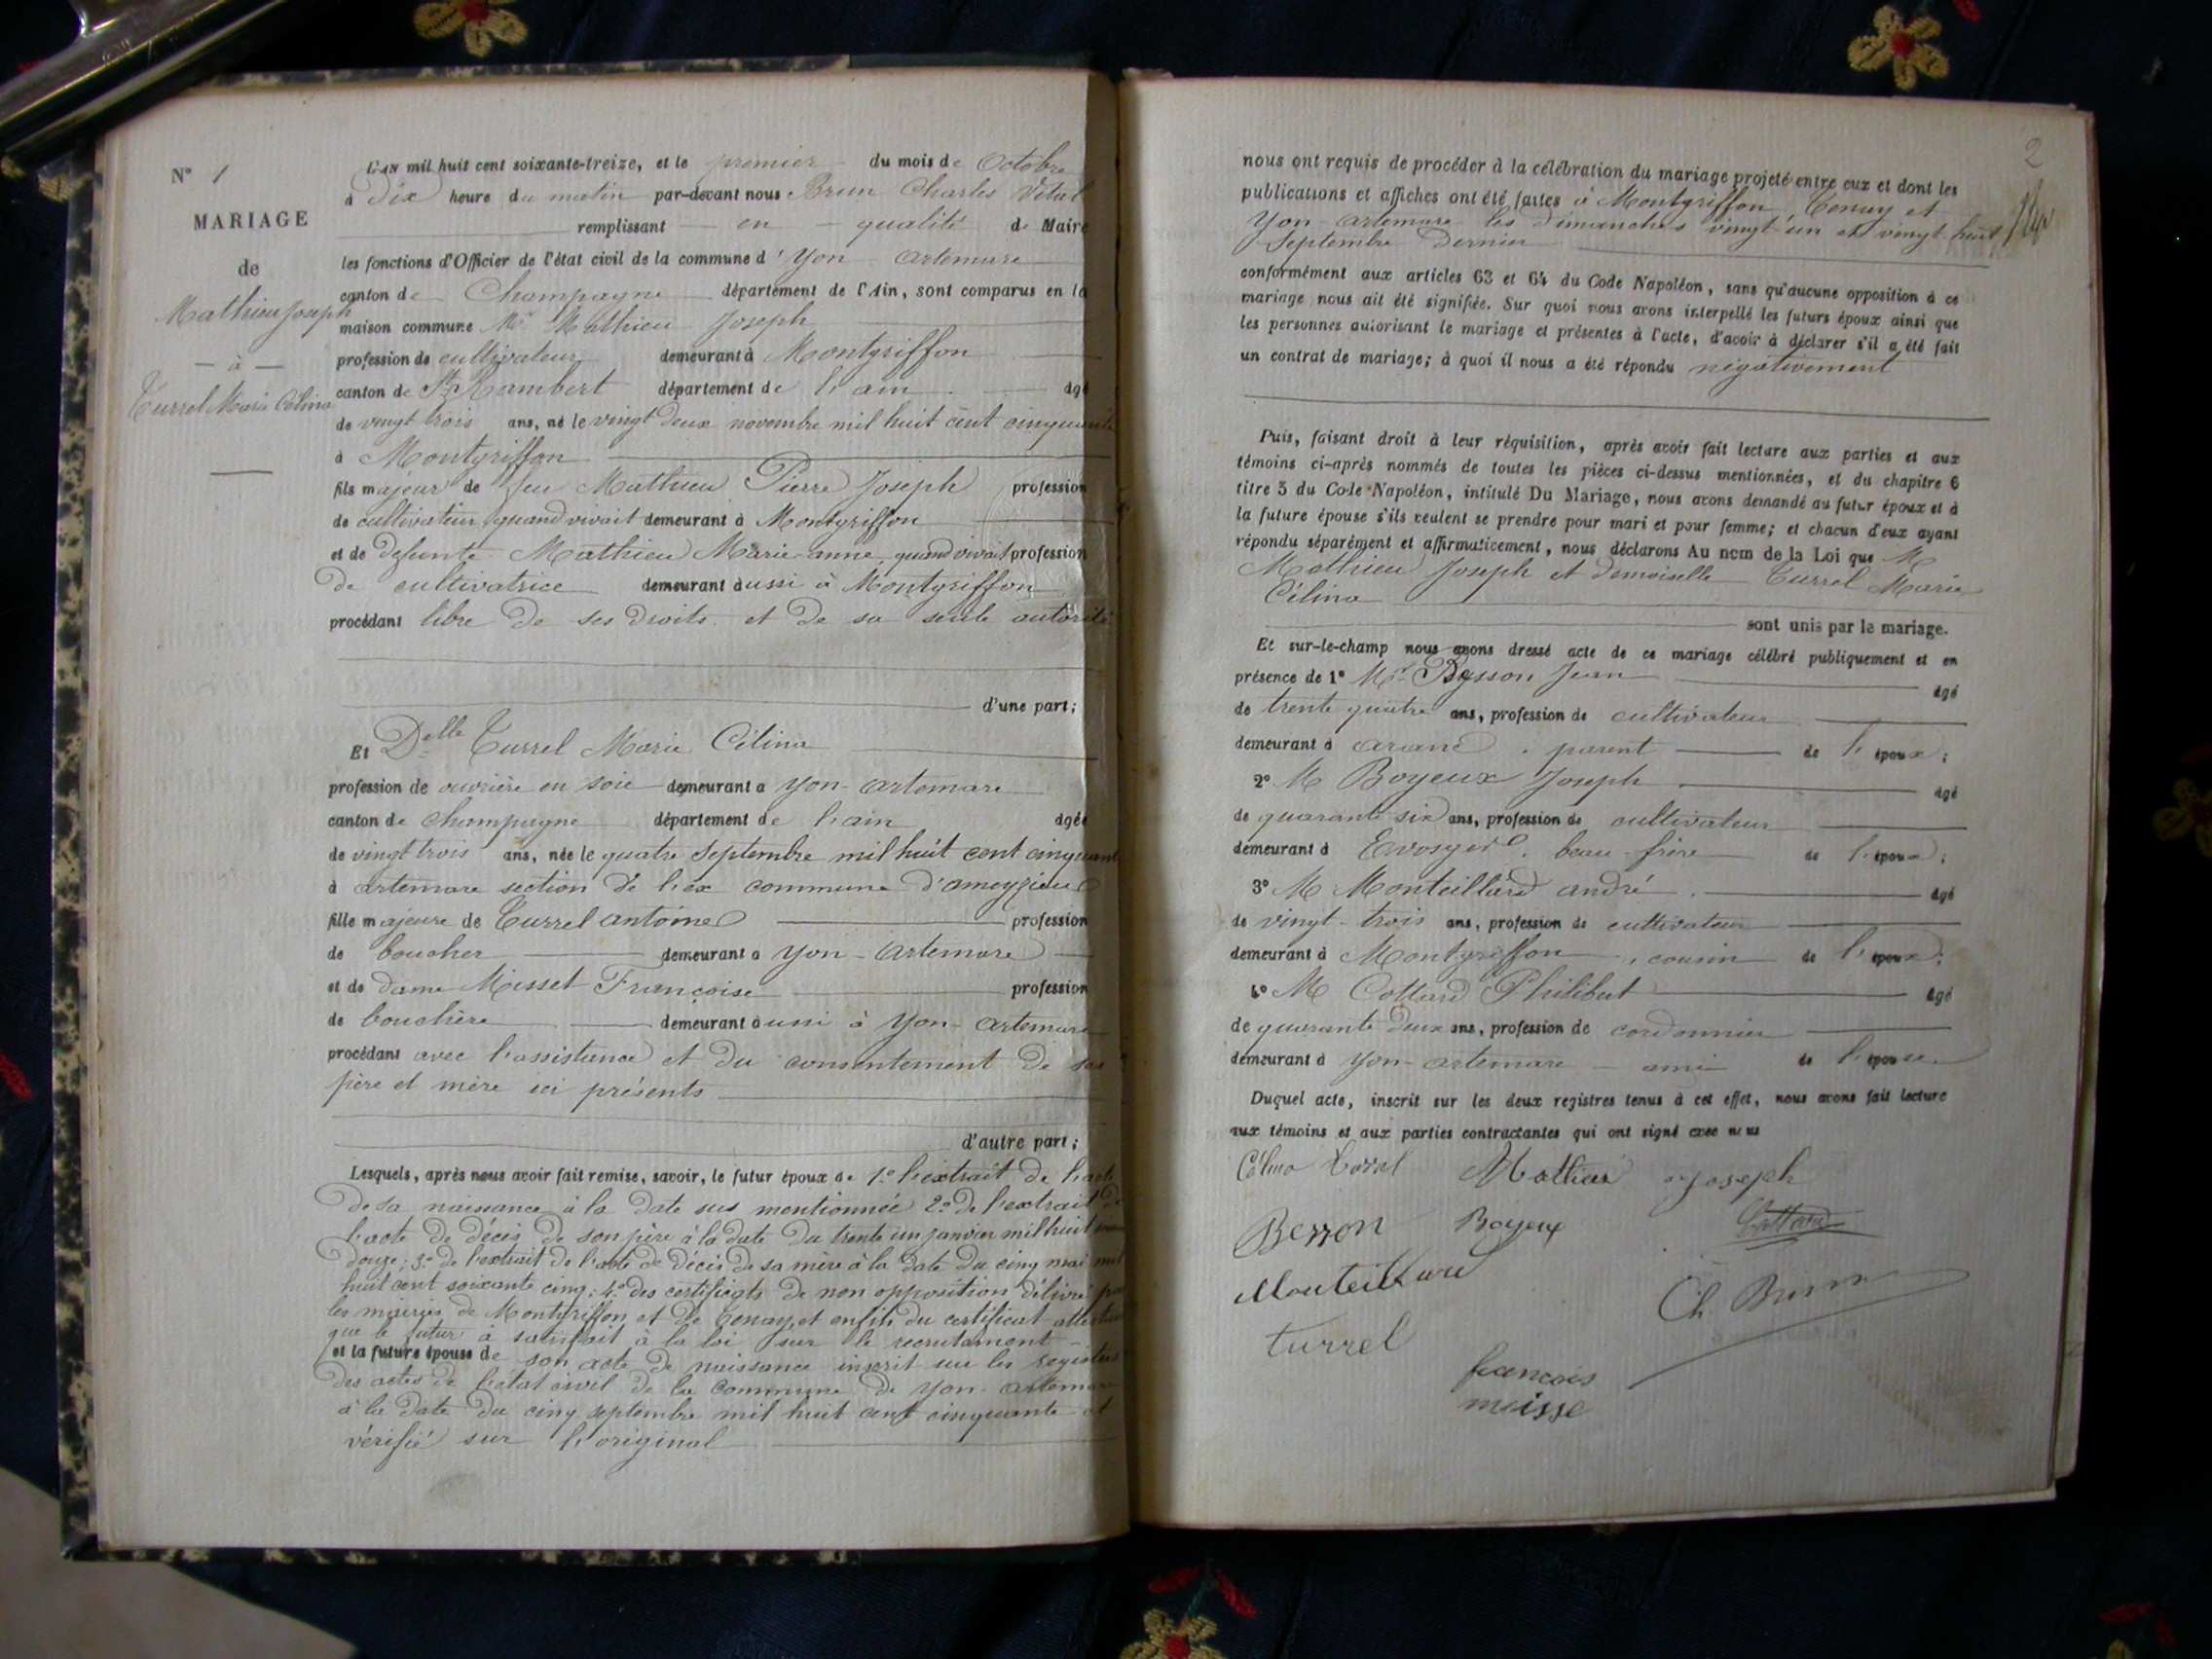 N° 1
MARIAGE
de
Mathieu Joseph
— à —
Turrel Marie Célina
L'an mil huit cent soixante-treize, et le premier du mois de Octobre
à Dix heure du matin par-devant nous Brun Charles Vital
remplissant en qualité de Maire
les fonctions d'Officier de l'état civil de la commune d'Yon-Artemare
canton de Champagne département de l'Ain, sont comparus en la
maison commune Mr Mathieu Joseph
profession de cultivateur demeurant à Montgriffon
canton de St Rambert département de l'ain âgé
de vingt trois ans, né le vingt deux novembre mil huit cent cinquante
à Montgriffon
fils majeur de feu Mathieu Pierre Joseph profession
de cultivateur quand vivait demeurant à Montgriffon
et de Defunte Mathieu Marie-anne, quand vivait profession
de cultivatrice demeurant aussi à Montgriffon
procédant libre de ses droits et de sa seule autorité
d'une part;
Et Delle Turrel Marie Célina
profession de ouvrière en soie demeurant à Yon-artemare
canton de Champagne département de l'ain âgée
de vingt trois ans, née le quatre Septembre mil huit cent cinquante
à artemare section de l'ex commune d'ameyzieu
fille majeure de Turrel antoine profession
de boucher demeurant à Yon-Artemare
et de Dame Misset Françoise profession
de bouchère demeurant aussi à Yon-Artemare
procédant avec l'assistance et du consentement de ses
père et mère ici présents
d'autre part;
Lesquels, après nous avoir fait remise, savoir, le futur époux de 1.° l'extrait de l'acte
de sa naissance à la date sus mentionnée 2.° de l'extrait de
l'acte de décès de son père à la date du trente un janvier mil huit
douze; 3.° de l'extrait de l'acte de décès de sa mère à la date du cinq mai mil
huit cent soixante cinq; 4.° des certificats de non opposition délivrés par
les mairies de Montgriffon et de Tenay, et enfin du certificat attestant
que le futur à satisfait à la loi sur le recrutement
et la future épouse de son acte de naissance inscrit sur les registres
des actes de l'état civil de la Commune de Yon-artemare
à la date du cinq septembre mil huit cent cinquante et
vérifié sur l'original
2
nous ont requis de procéder à la célébration du mariage projeté entre eux et dont les
publications et affiches ont été faites à Montgriffon, Tenay et
Yon-artemare les Dimanches vingt-un et vingt-huit
Septembre Dernier
conformément aux articles 63 et 64 du Code Napoléon, sans qu'aucune opposition à ce
mariage nous ait été signifiée. Sur quoi nous avons interpellé les futurs époux ainsi que
les personnes autorisant le mariage et présentes à l'acte, d'avoir à déclarer s'il a été fait
un contrat de mariage; à quoi il nous a été répondu négativement
Puis, faisant droit à leur réquisition, après avoir fait lecture aux parties et aux
témoins ci-après nommés de toutes les pièces ci-dessus mentionnées, et du chapitre 6
titre 5 du Code Napoléon, intitulé Du Mariage, nous avons demandé au futur époux et à
la future épouse s'ils veulent se prendre pour mari et pour femme; et chacun d'eux ayant
répondu séparément et affirmativement, nous déclarons Au nom de la Loi que M
Mathieu Joseph et Demoiselle Turrel Marie
Célina
sont unis par le mariage.
Et sur-le-champ nous avons dressé acte de ce mariage célébré publiquement et en
présence de 1° Mr Besson Jean âgé
de trente quatre ans, profession de cultivateur
demeurant à arand, parent de l'époux;
2° M Boyeux Joseph âgé
de quarante six ans, profession de cultivateur
demeurant à Evosges, beau-frère de l'époux;
3° M Monteillard andré âgé
de vingt-trois ans, profession de cultivateur
demeurant à Montgriffon, cousin de l'époux;
4° M Cottard Philibert âgé
de quarante deux ans, profession de cordonnier
demeurant à Yon-artemare — ami de l'épouse.
Duquel acte, inscrit sur les deux registres tenus à cet effet, nous avons fait lecture
aux témoins et aux parties contractantes qui ont signé avec nous
Célina Turrel Mathieu Joseph
Besson Boyeux Cottard
Monteillard
Ch. Brun
turrel
francois
meisse